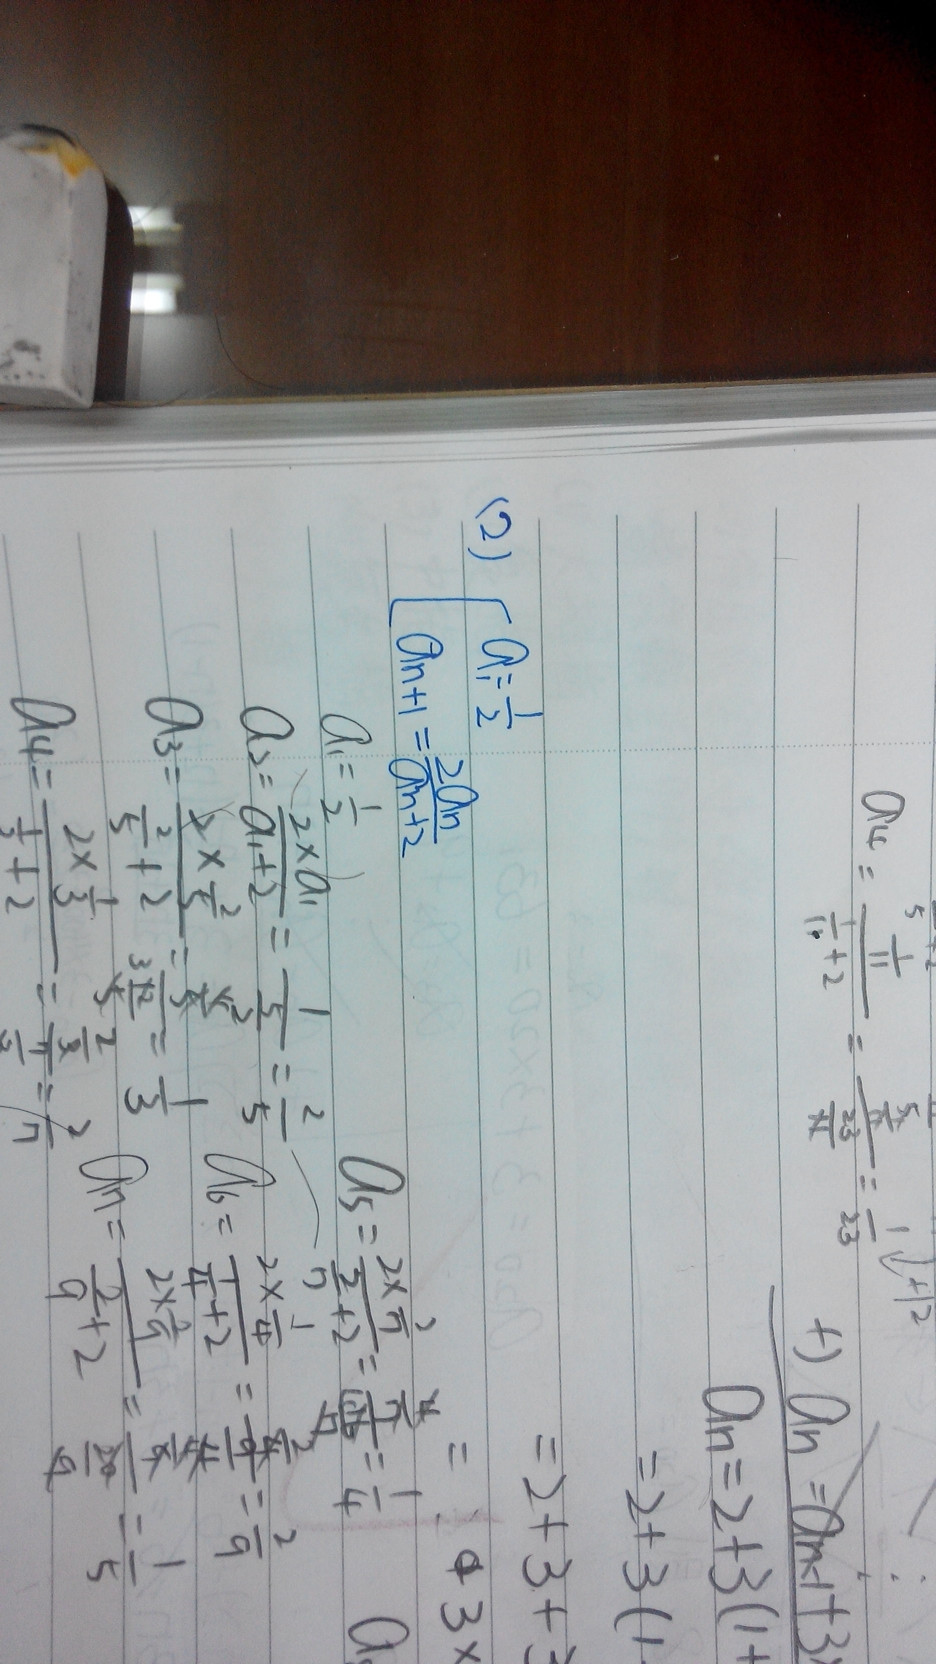 a4 = (1/11)/(1/11 + 2) = (1/11)/(23/11) = 1/23
+) an = an-1 + 3
an = 2 + 3(1+
= 2 + 3(1
= 2 + 3 + 3
(2) { a1 = 1/2
an+1 = 2an/(an+2)
a1 = 1/2
a2 = (2×a1)/(a1+2) = 1/(5/2) = 2/5
a3 = (2×2/5)/(2/5+2) = (4/5)/(12/5) = 1/3
a4 = (2×1/3)/(1/3+2) = (2/3)/(7/3) = 2/7
a5 = (2×2/7)/(2/7+2) = (4/7)/(16/7) = 1/4
a6 = (2×1/4)/(1/4+2) = (2/4)/(9/4) = 2/9
a7 = (2×2/9)/(2/9+2) = (4/9)/(20/9) = 1/5